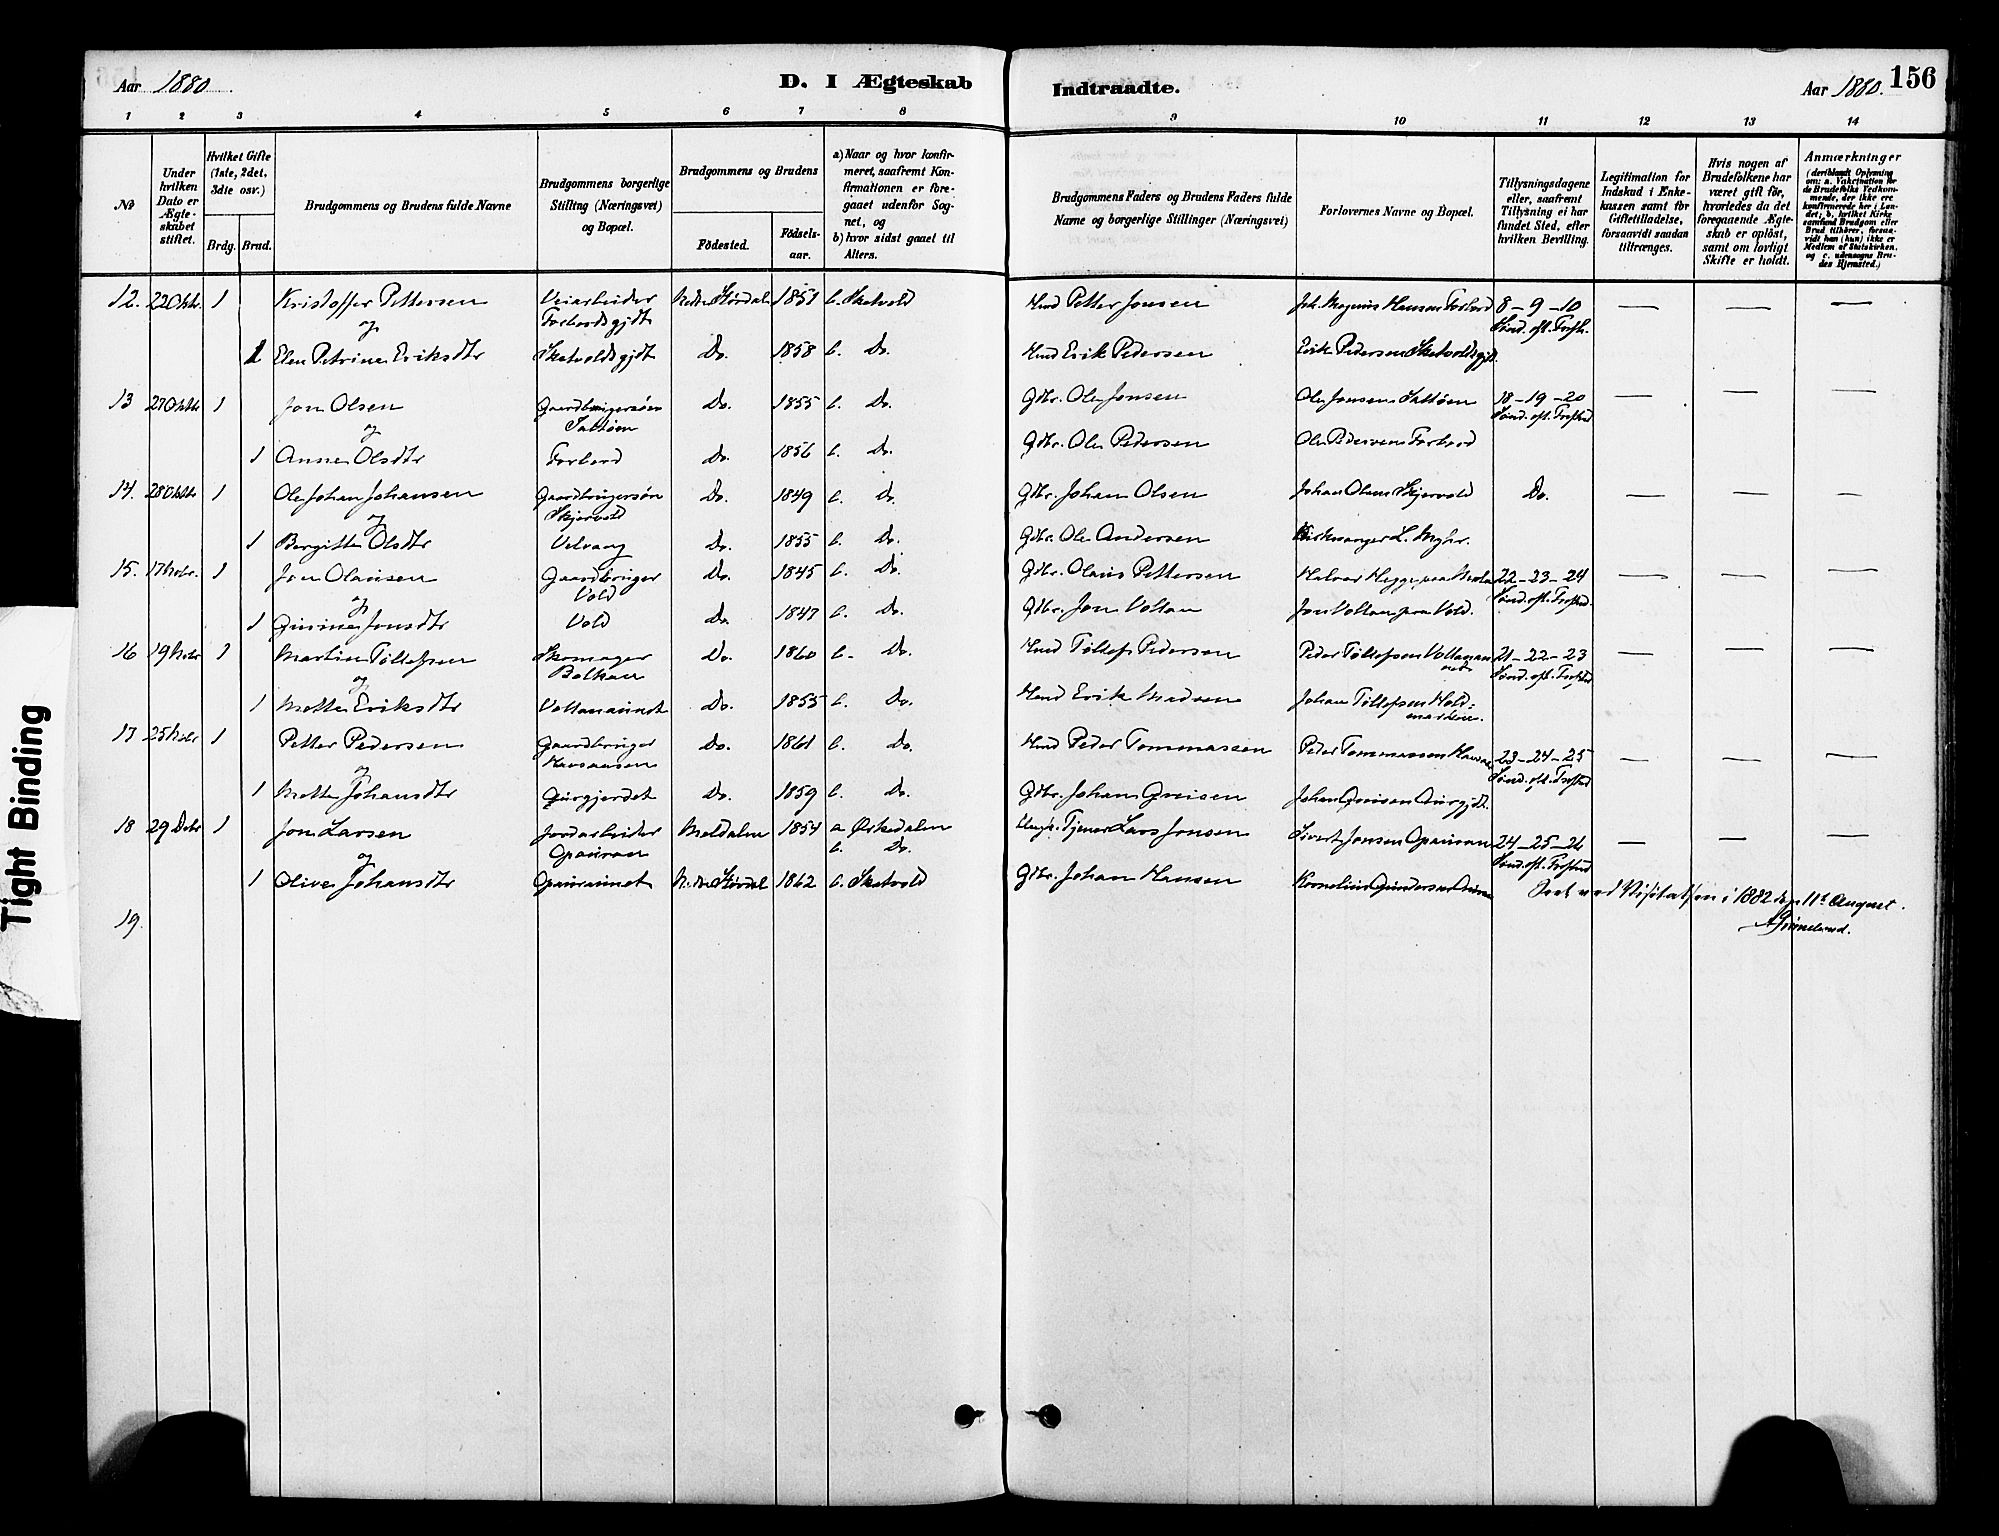 Aar 1880.
D. I Ægteskab Indtraadte.
Aar 1880. 156
1 2 3 4 5 6 7 8 9 10 11 12 13 14
No
Under hvilken Dato er Ægteskabet stiftet.
Hvilket Gifte (1ste, 2det, 3die osv.)
Brdg. Brud.
Brudgommens og Brudens fulde Navne
Brudgommens borgerlige Stilling (Næringsvei) og Bopæl.
Brudgommens og Brudens
Fødested. Fødselsaar.
a) Naar og hvor konfirmeret, saafremt Konfirmationen er foregaaet udenfor Sognet, og
b) hvor sidst gaaet til Alters.
Brudgommens Faders og Brudens Faders fulde Navne og borgerlige Stillinger (Næringsvei)
Forlovernes Navne og Bopæl.
Tillysningsdagene eller, saafremt Tillysning ei har fundet Sted, efter hvilken Bevilling.
Legitimation for Indskud i Enkekassen samt for Giftetilladelse, forsaavidt saadan tiltrænges.
Hvis nogen af Brudefolkene har været gift før, hvorledes da det foregaaende Ægteskab er opløst, samt om lovligt Skifte er holdt.
Anmærkninger (deriblandt Oplysning om: a. Vakcination for de Brudefolks Vedkommende, der ikke ere konfirmerede her i Landet; b. hvilket Kirkesamfund Brudgom eller Brud tilhører, forsaavidt han (hun) ikke er Medlem af Statskirken, og c. udensogns Brudes Hjemsted.)
12. 22 Oktr. 1 Kristoffer Pettersen Veiarbeider Nedre Størdal 1851 b. Skatvold Hmd Petter Jonsen Joh. Magnus Hansen Forbord 8-9-10 — — —
og Forbordsgjdt Sønd. eft. Trefh.
1 Elen Petrine Eriksdtr Skatvoldsgjdt Do. 1858 b. Do. Hmd Erik Pedersen Erik Pedersen Skatvoldsgjdt.
13 27 Oktr 1 Jon Olsen Gaardbrugersøn Do. 1855 b. Do. Gdbr. Ole Jonsen Ole Jonsen Saltøen 18-19-20 — — —
og Saltøen Sønd. eft. Trefhd
1 Anne Olsdtr Forbord Do. 1856 b. Do. Gdbr. Ole Pedersen Ole Pedersen Forbord
14. 28 Oktr 1 Ole Johan Johansen Gaardbrugersøn Do. 1849 b. Do. Gdbr. Johan Olsen Johan Olsen Skjervold Do. — — —
og Skjervold
1 Bergitte Olsdtr Velvang Do. 1855 b. Do. Gdbr. Ole Andersen Kirkesanger L. Myhr.
15. 17 Nobr. 1 Jon Olausen Gaardbruger Do. 1845 b. Do. Gdbr. Olaus Pettersen Halvor Hegge 22-23-24 — — —
og Vold Sønd. eft. Trefhd.
1 Gurine Jonsdtr Vold Do. 1847 b. Do. Gdbr. Jon Vollan Jon Vollan paa Vold.
16 19 Nobr 1 Martin Tøllefsen Skomager Do. 1860 b. Do. Hmd Tøllef Pedersen Peder Tøllefsen 21-22-23 — — —
og Balkan Sønd. eft. Trefhd
1 Mette Eriksdtr Vollanaunet Do. 1855 b. Do. Hmd Erik Madsen Johan Tøllefsen Holdmarken.
17 25 Nobr 1 Petter Pedersen Gaardbruger Do. 1861 b. Do. Hmd Peder Tommassen Peder Tommassen 23-24-25 — — —
og Havsaasen Sønd. eft. Trefhd
1 Mette Johansdtr Gurgjerdet Do. 1859 b. Do. Gdbr. Johan
18 29 Debr 1 Jon Larsen Jordarbeider Meldalen 1854 a Ørkedalen Tjener Lars Jonsen Sivert Jonsen Opauran 24-25-26 — — —
og Opauran b. Do. Sønd. eft. Trefhd
1 Olive Johansdtr Opauraunet Nedre Størdal 1862 b. Skatvold Gdbr. Johan Hansen Kornelius
Seet ved Visitatsen i 1882 den 11te August.
19.
Tight Binding